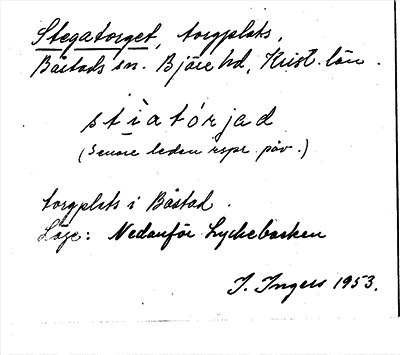 Stegatorget, torgplats,
Båstads sn. Bjäre hd, Krist. län.
stìatórjad
(Senare leden rspr. påv.)
torgplats i Båstad.
Läge: Nedanför Lyckebacken
I. Ingers 1953.